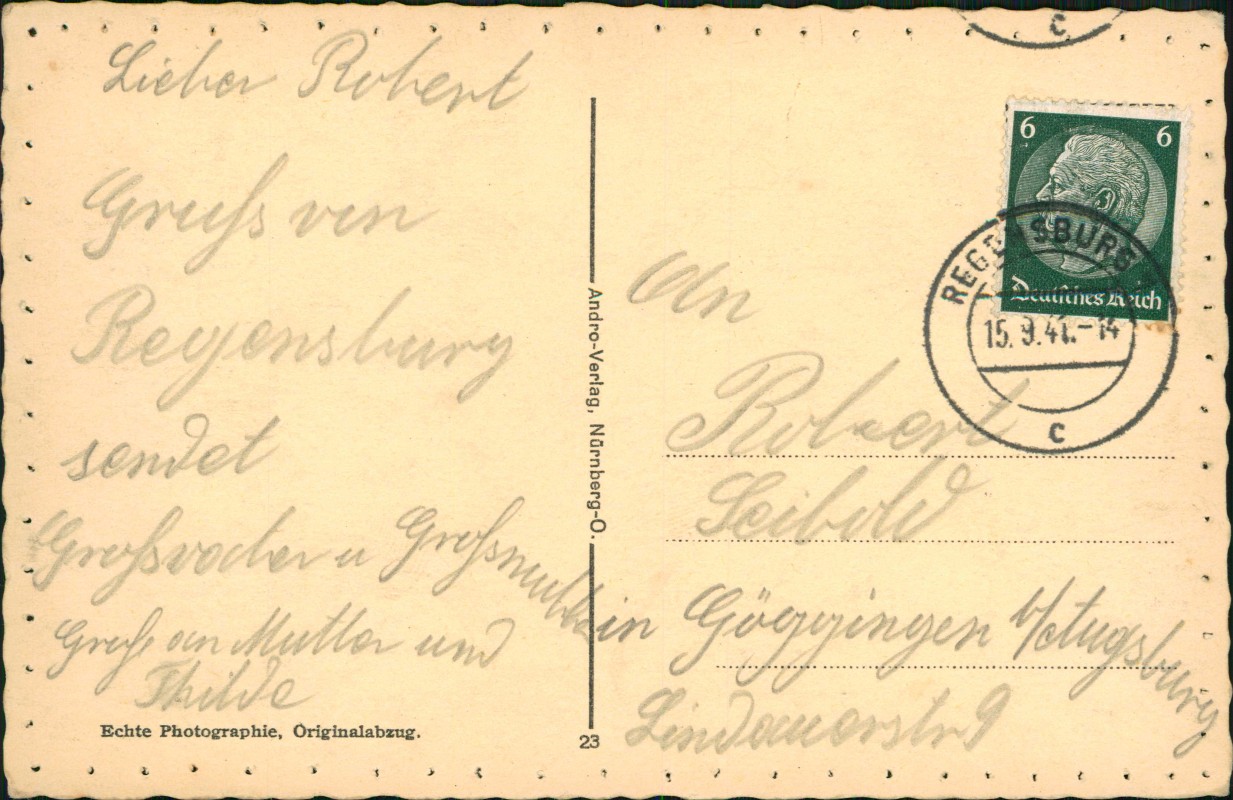 Lieber Robert
Gruß von
Regensburg
sendet
Großvater u Großmutter
Gruß an Mutter und
Thilde
Echte Photographie, Originalabzug.
Andro-Verlag, Nürnberg-O.
23
C
6 6
Deutsches Reich
REGENSBURG
15.9.41.-14
c
An
Robert
Seibold
in Göggingen b/Augsburg
Lindauerstr 9